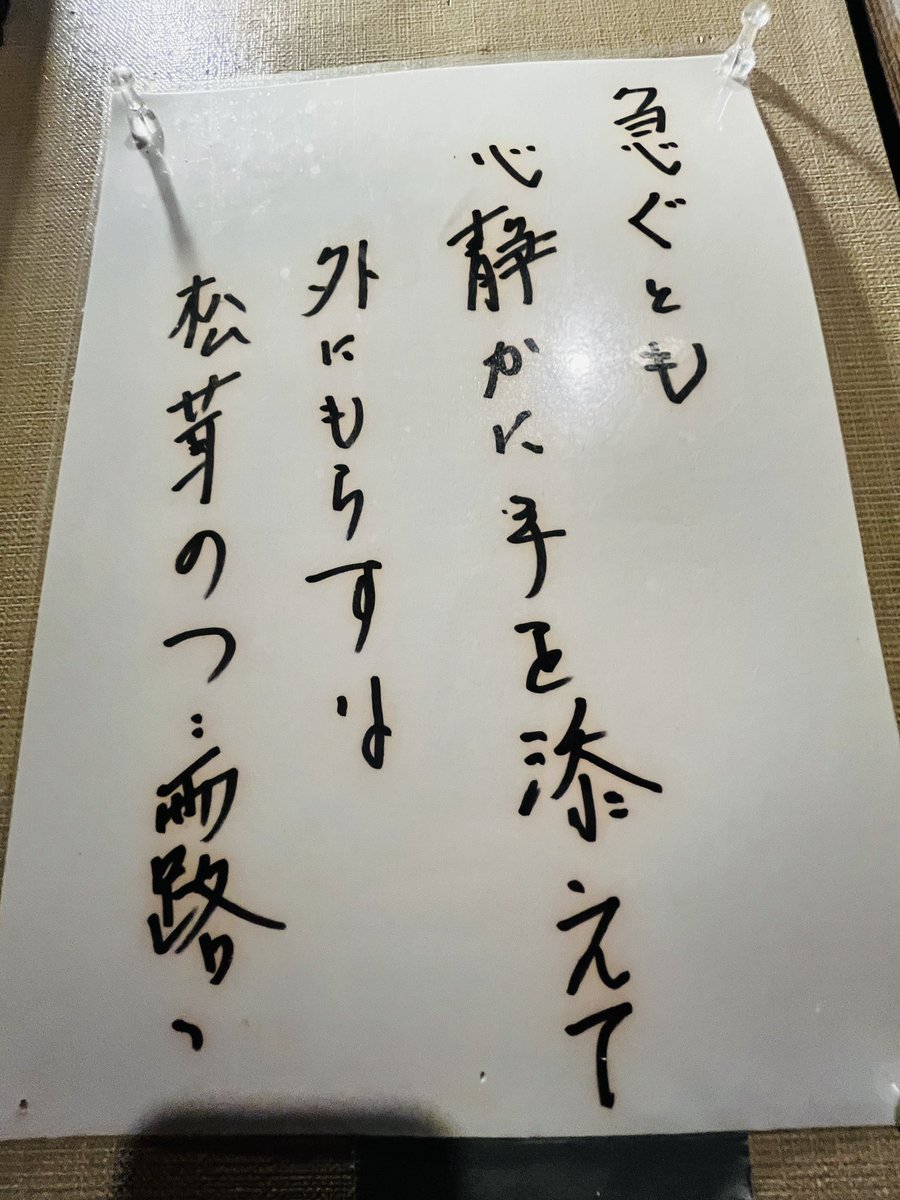 急ぐとも
心静かに手を添えて
外にもらすな
松茸のつゆ